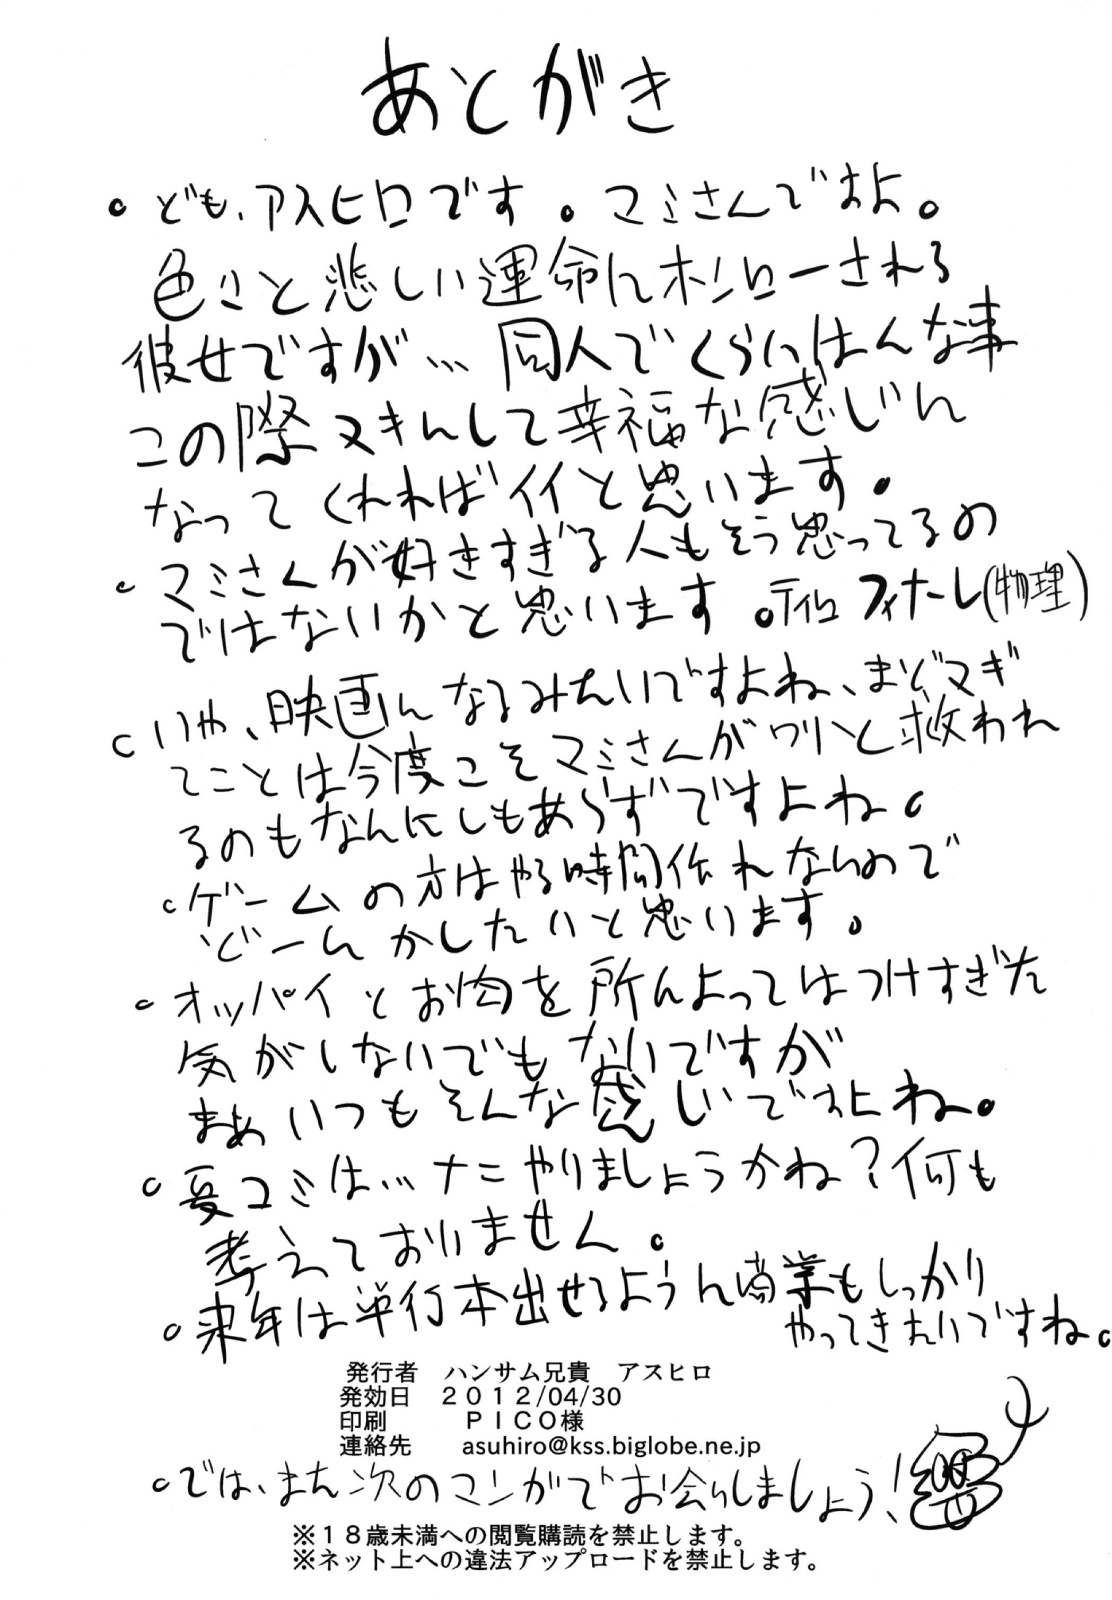 あとがき
・ども、アスヒロです。マミさんですよ。
色々と悲しい運命にホンローされる
彼女ですが…同人でくらいはんな事
この際ヌキにして幸福な感じに
なってくれればイイと思います。
・マミさんが好きすぎる人もそう思ってるの
ではないかと思います。ティロフィナーレ(物理)
・いや、映画になるみたいですよね、まどマギ
てことは今度こそマミさんがワリと救われ
るのもなんにしもあらずですよね。
・ゲームの方はやる時間作れないので
どーにかしたいと思います。
・オッパイとお肉を所によってはつけすぎた
気がしないでもないですが
まぁいつもそんな感じですよね。
・夏コミは…ナニやりましょうかね?何も
考えておりません。
・来年は単行本出せるように商業もしっかり
やってきたいですね。
発行者 ハンサム兄貴 アスヒロ
発効日 2012/04/30
印刷 PICO様
連絡先 asuhiro@kss.biglobe.ne.jp
・では、また次のマンガでお会いしましょう!
※18歳未満への閲覧購読を禁止します。
※ネット上への違法アップロードを禁止します。